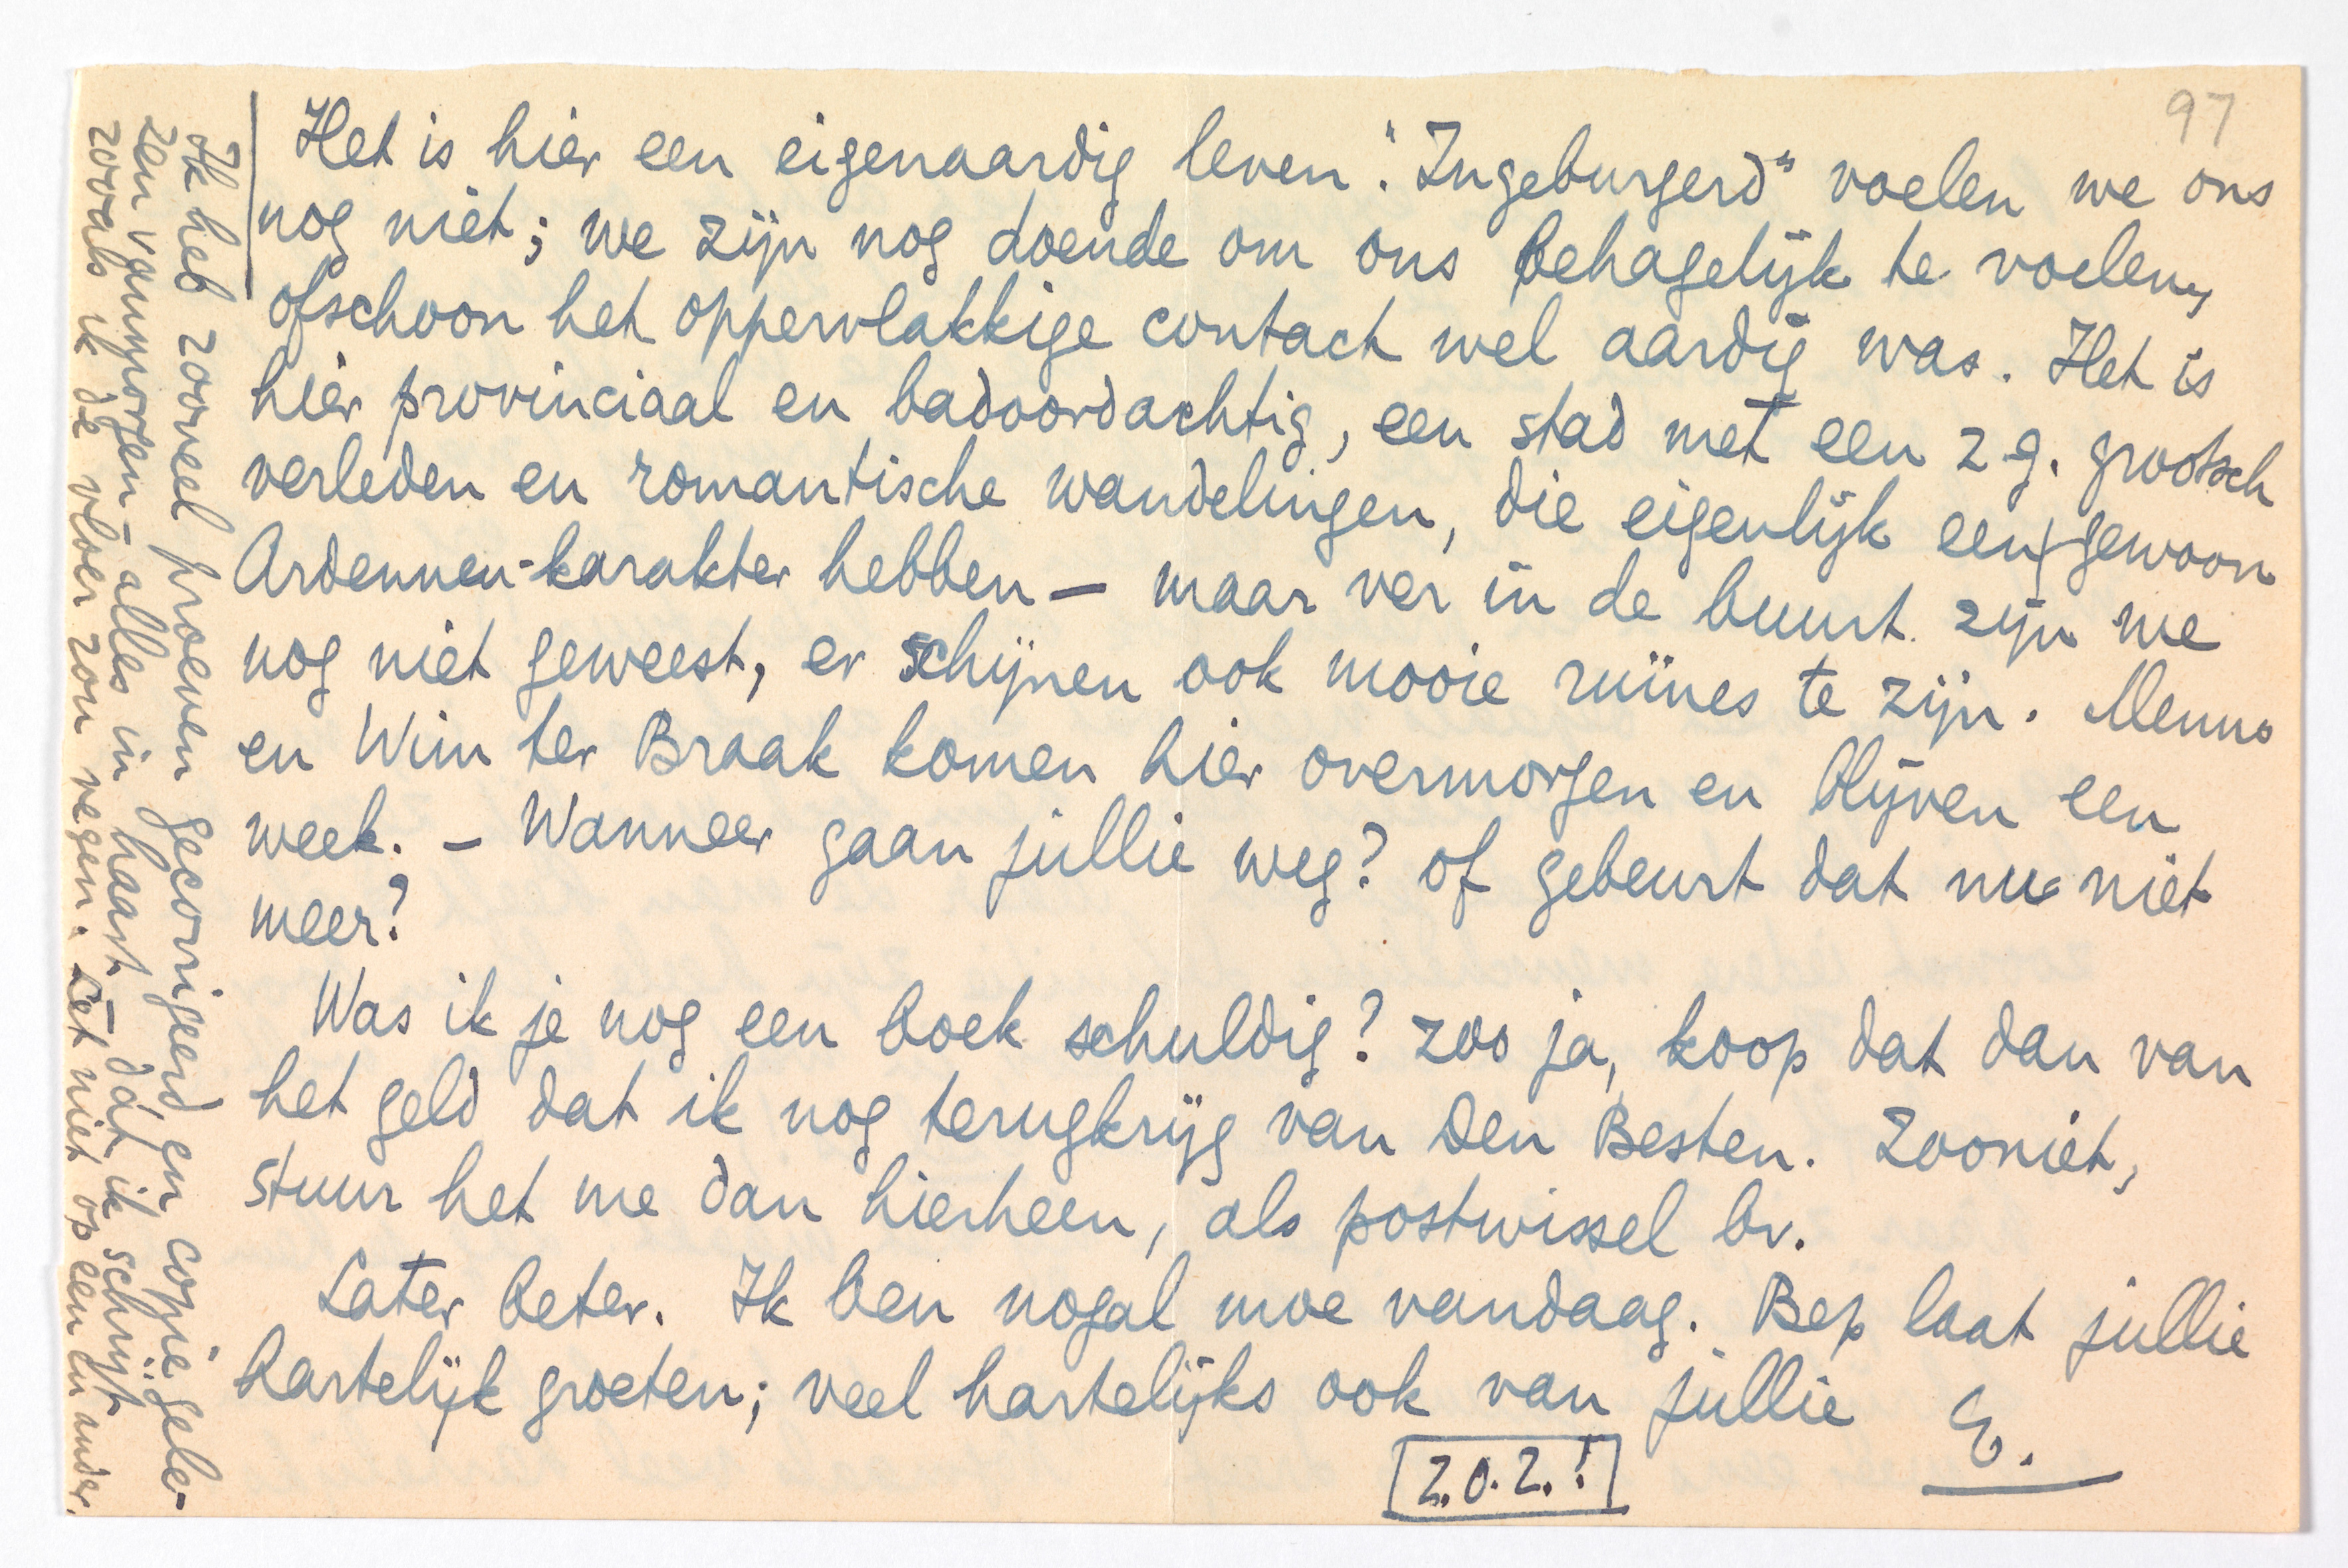 97
Het is hier een eigenaardig leven. "Ingeburgerd" voelen we ons
nog niet; we zijn nog doende om ons behagelijk te voelen,
ofschoon het oppervlakkige contact wel aardig was. Het is
hier provinciaal en badoordachtig, een stad met een z.g. grootsch
verleden en romantische wandelingen, die eigenlijk een gewoon
Ardennen-karakter hebben — maar ver in de buurt zijn we
nog niet geweest, er schijnen ook mooie ruïnes te zijn. Menno
en Wim ter Braak komen hier overmorgen en blijven een
week. – Wanneer gaan jullie weg? of gebeurt dat nu niet
meer?
Was ik je nog een boek schuldig? zoo ja, koop dat dan van
het geld dat ik nog terugkrijg van Den Besten. Zooniet,
stuur het me dan hierheen, als postwissel bv.
Later beter. Ik ben nogal moe vandaag. Bep laat jullie
hartelijk groeten; veel hartelijks ook van jullie
E.
Z.O.Z.!
Ik heb zooveel proeven gecorrigeerd en copie gele-
zen vanmorgen – alles in haast – dat ik schrijf
zooals ik de vloer zou vegen. Let niet op een en ander.